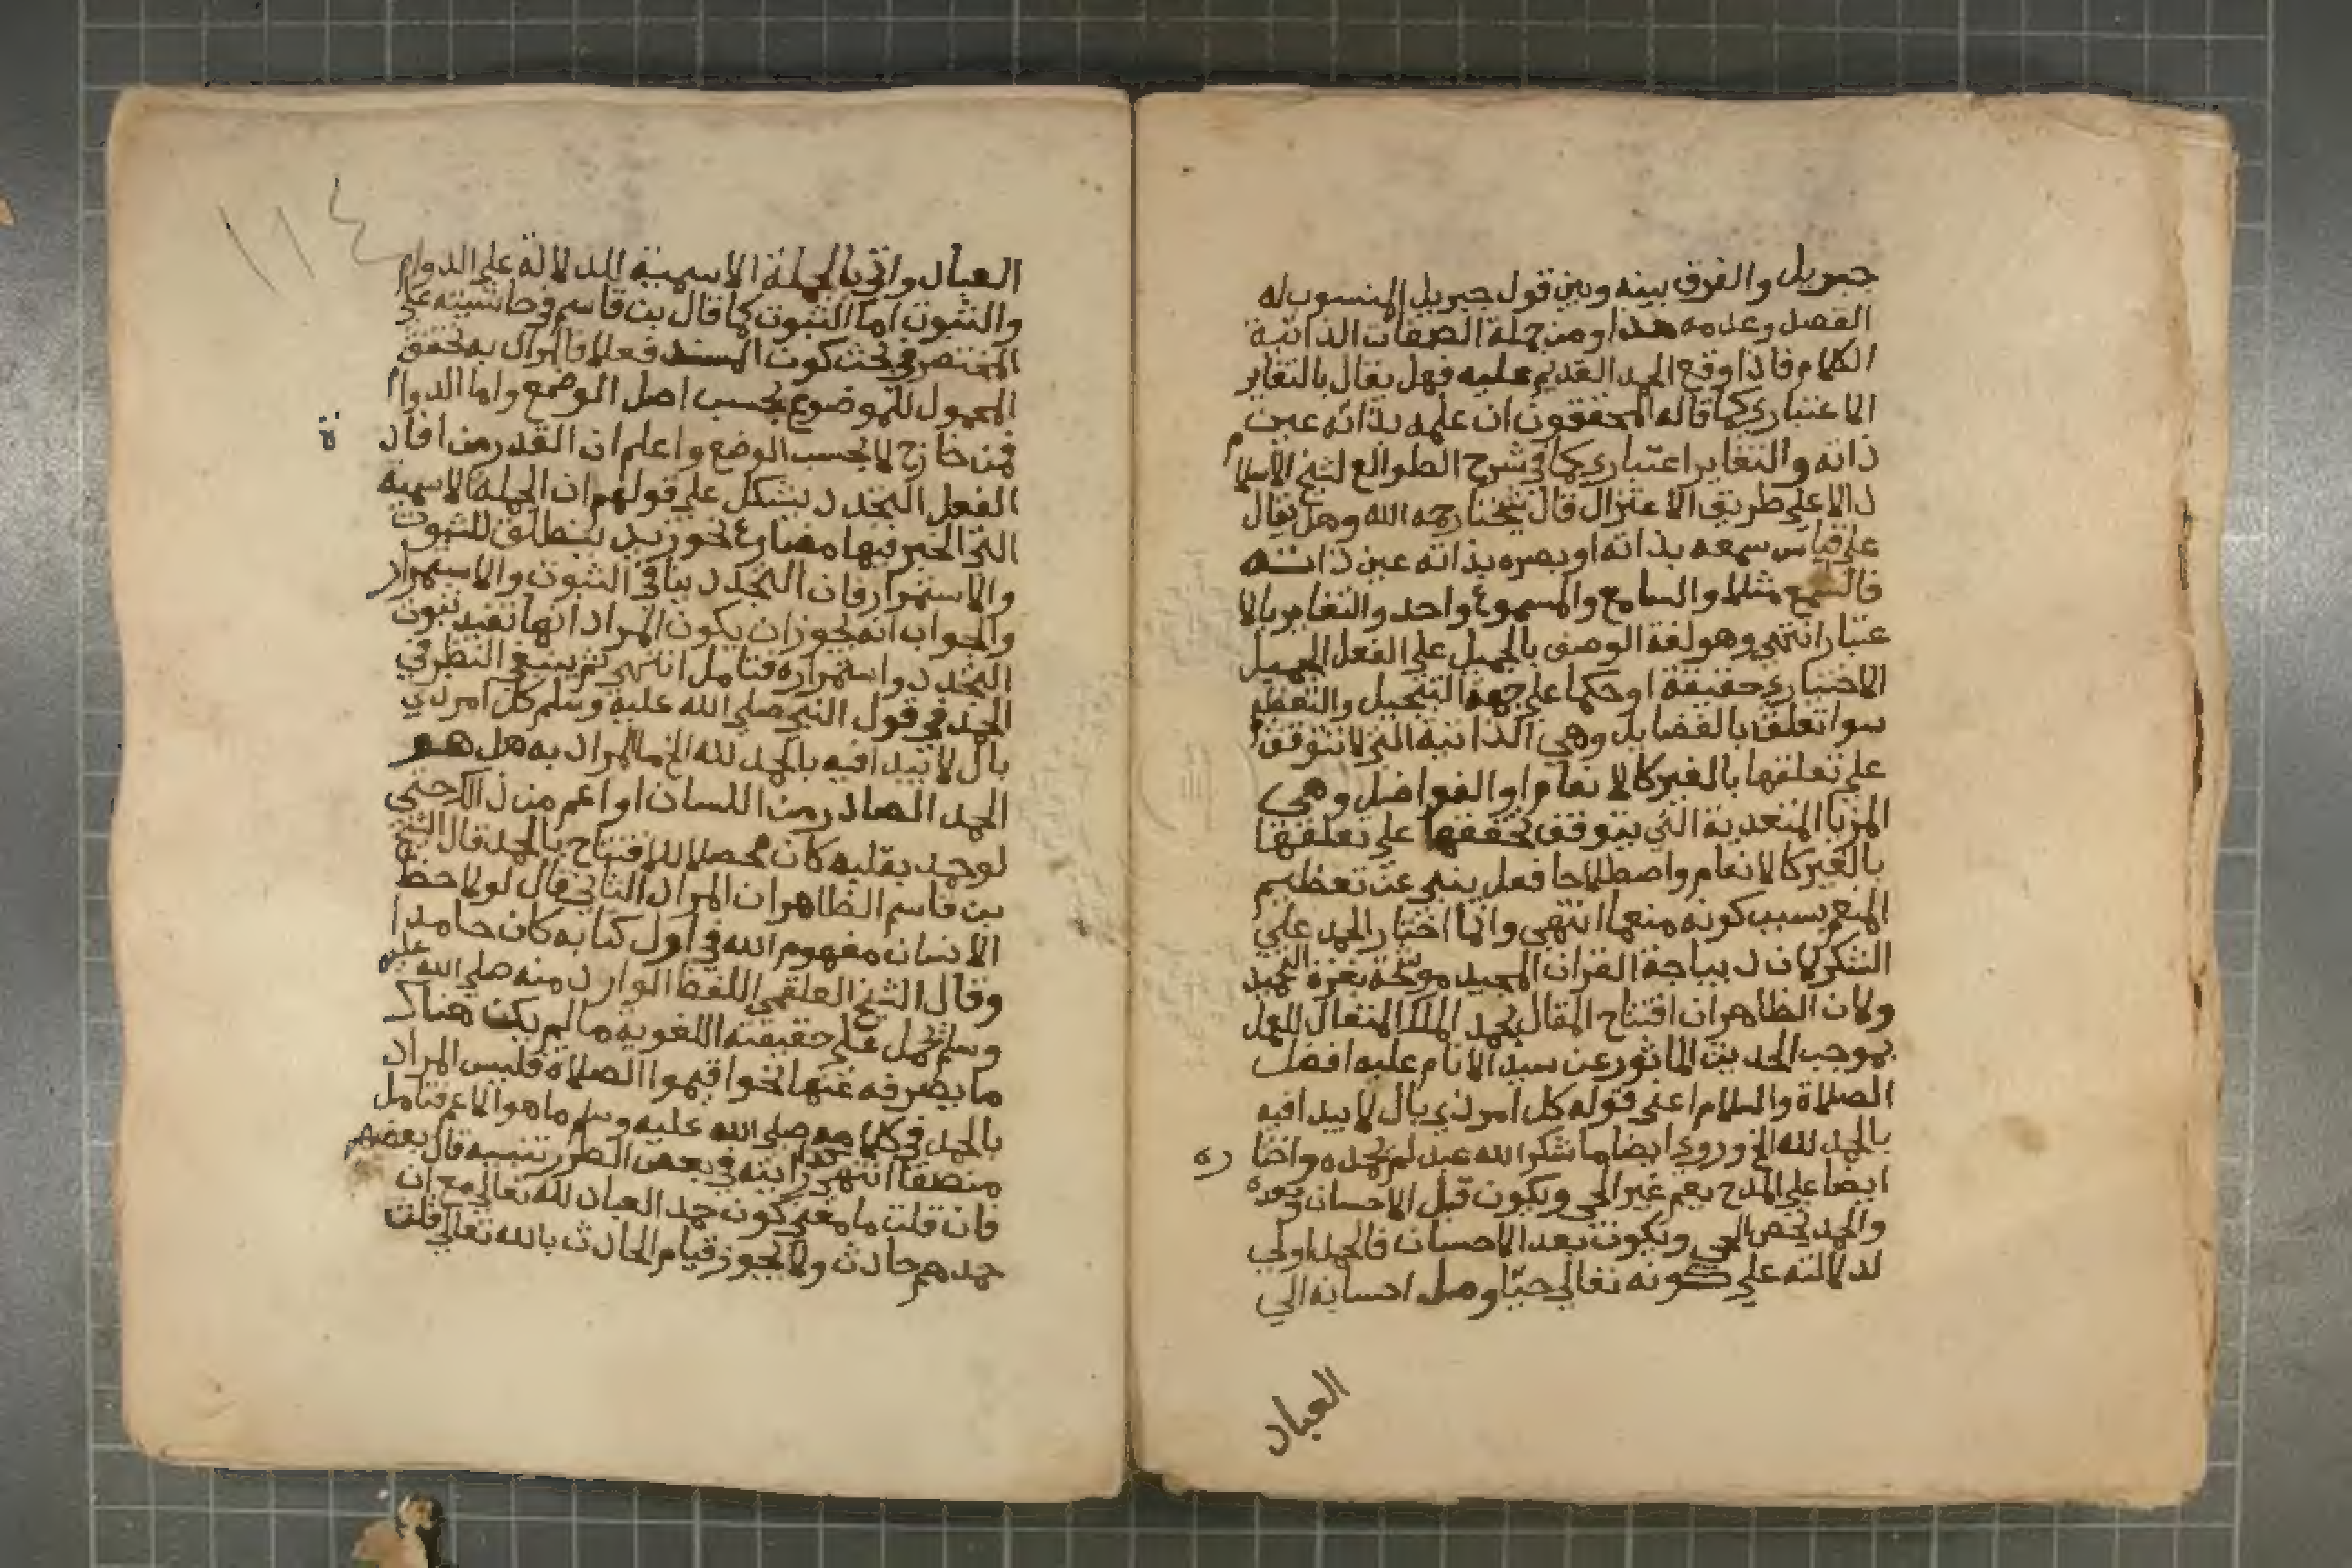 جبريل والفرق بينه وبين قول جبريل المنسوب له
الفصل وعدمه هذا ومن جملة الصفات الذاتية
الكلام فاذا وقع الحمد القديم عليه فهل يقال بالتغاير
الاعتباري كما قاله المحققون ان علمه بذاته عين
ذاته والتغاير اعتباري كما في شرح الطوالع لشيخ الاسلام
ذا لا علي طريق الاعتزال قال شيخنا رحمه الله وهل يقال
علي قياس سمعه بذاته او بصره بذاته عين ذاته
فالسمع مثلا والسامع والمسموع واحد والتغاير بالا
عتبار انتهي وهو لغة الوصف بالجميل علي الفعل الجميل
الاختياري حقيقة او حكما علي جهة التبجيل والتعظيم
سوا تعلق بالفضايل وهي الذاتية التي لا تتوقف
علي تعلقها بالغير كالانعام او الفواضل وهي
المزيا المتعدية التي يتوقف تحققها علي تعلقها
بالغير كالانعام واصطلاحا فعل ينبي عن تعظيم
المنعم بسبب كونه منعما انتهي وانما اختار الحمد علي
الشكر لان ديباجة القران المجيد موشحة بغرة التحميد
ولان الظاهر ان افتتاح المقال بحمد الملك المتعال للعمل
بموجب الحديث الماثور عن سيد الانام عليه افضل
الصلاة والسلام اعني قوله كل امر ذي بال لا يبدا فيه
بالحمد لله الخ وروي ايضا ما شكر الله عبد لم يحمده واختا ره
ايضا علي المدح يعم غير الحي ويكون قبل الاحسان وبعده
والحمد يخص الحي ويكون بعد الاحسان فالحمد اولي
لدلالته علي كونه تعالي حيا وصل احسانه الي
العباد
١١٤
العباد واتي بالجملة الاسمية للدلالة علي الدوام
والثبوت اما الثبوت كما قال بن قاسم في حاشيته علي
المختصر في بحث كون المسند فعلا فالمراد به تحقق
المحمول للموضوع بحسب اصل الوضع واما الدوام
فمن خارج لا بحسب الوضع واعلم ان القدر من افاد ة
الفعل التجدد يشكل علي قولهم ان الجملة الاسمية
التي الخبر فيها مضارع نحو زيد ينطلق للثبوت
والاستمرار فان التجدد ينافي الثبوت والاستمرار
والجواب انه يجوز ان يكون المراد انها تفيد ثبوت
التجدد واستمراره فتامل انتهي ثم ينبغي النظر في
الحمد في قول النبي صلي الله عليه وسلم كل امر ذي
بال لا يبدا فيه بالحمد لله الخ ما المراد به هل هو
الحمد الصادر من اللسان او اعم من ذالك حتي
لو حمد بقلبه كان محصلا للافتتاح بالحمد قال الشيخ
بن قاسم الظاهر ان المراد الثاني قال لو لاحظ
الانسان مفهوم الله في اول كتابه كان حامدا
وقال الشيخ العلقمي اللفظ الوارد منه صلي الله عليه
وسلم يحمل علي حقيقته اللغوية ما لم يكن هناك
ما يصرفه عنها نحو اقيموا الصلاة فليس المراد
بالحمد في كلامه صلي الله عليه وسلم ما هو الاعم فتامل
منصفا انتهي رايته في بعض الطرر تنبيه قال بعضهم
فان قلت ما معني كون حمد العباد لله تعالي مع ان
حمدهم حادث ولا يجوز قيام الحادث بالله تعالي قلت